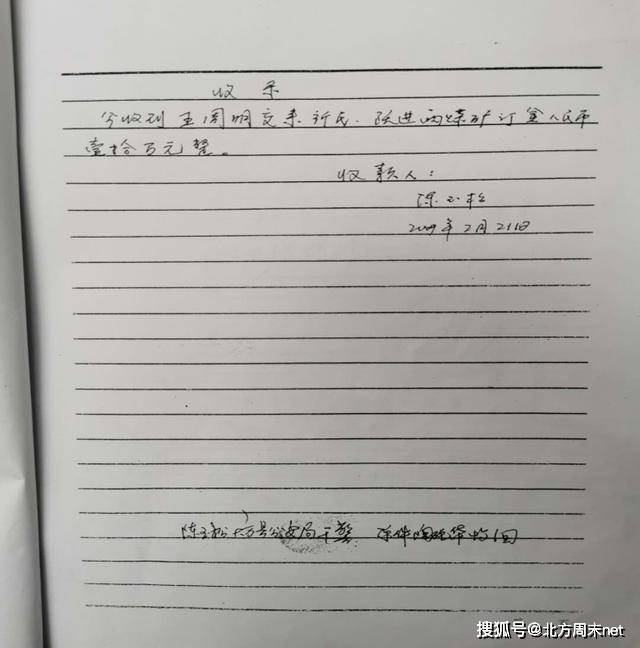 收条
今收到王周明交来新民、跃进两煤矿订金人民币
壹拾万元整。
收款人：
陈玉松
2009年2月21日
陈玉松大方县公安局干警 原件
搜狐号@北方周末net